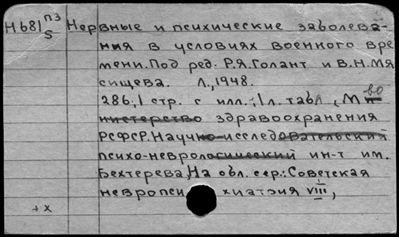 Н681 пз/5 Нервные и психические заболева-
ния в условиях военного вре
мени. Под ред. Р.Я.Голант и В.Н.Мя
сищева. Л., 1948.
286,1 стр. с илл.; 1 л. табл , М во
нистерство здравоохранения
РСФСР. Научно-исследовательский
психо-неврологический ин-т им.
Бехтерева, На обл. сер.: Советская
невропси хиатрия VIII,
+ х